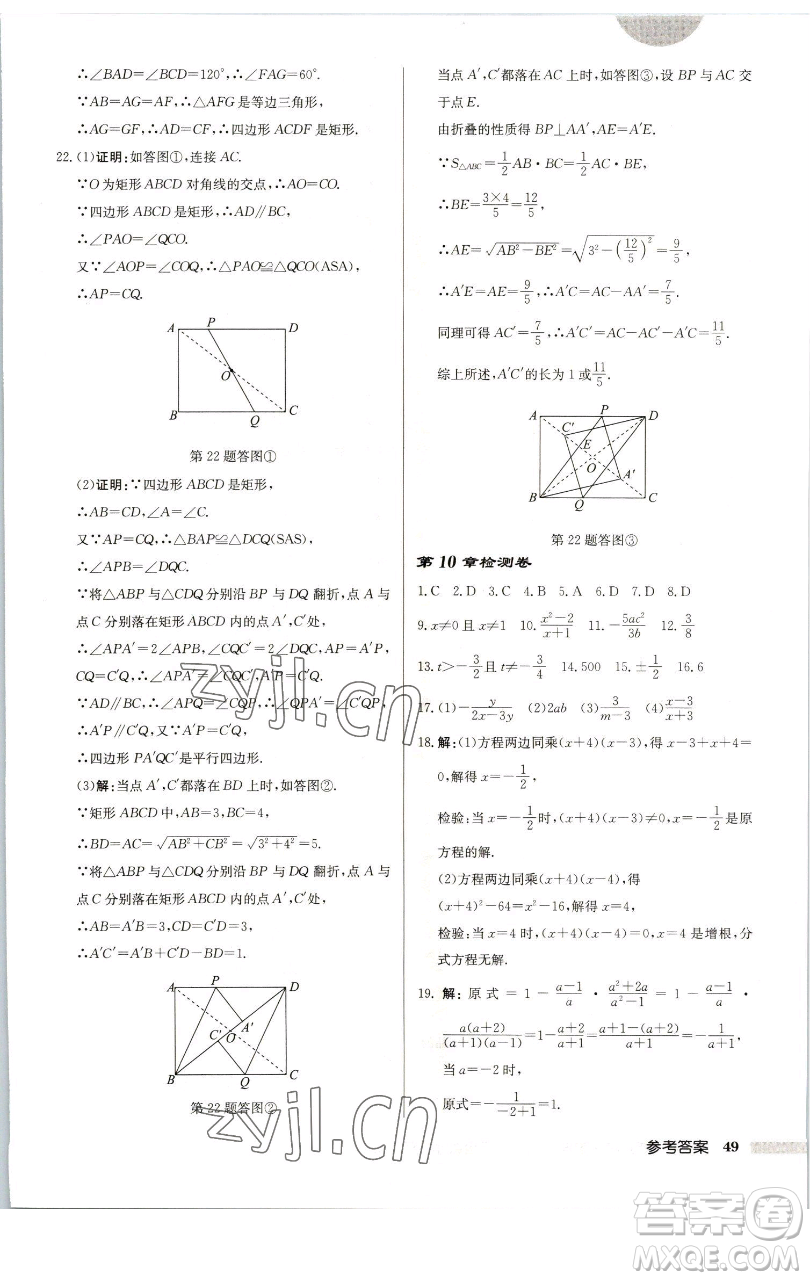 ∴∠BAD=∠BCD=120°,∴∠FAG=60°.
∵AB=AG=AF,∴△AFG是等边三角形,
∴AG=GF,∴AD=CF,∴四边形ACDF是矩形.
22.(1)证明:如答图①,连接AC.
∵O为矩形ABCD对角线的交点,∴AO=CO.
∵四边形ABCD是矩形,∴AD∥BC,
∴∠PAO=∠QCO.
又∵∠AOP=∠COQ,∴△PAO≌△QCO(ASA),
∴AP=CQ.
A P D
O
B Q C
第22题答图①
(2)证明:∵四边形ABCD是矩形,
∴AB=CD,∠A=∠C.
又∵AP=CQ,∴△BAP≌△DCQ(SAS),
∴∠APB=∠DQC.
∵将△ABP与△CDQ分别沿BP与DQ翻折,点A与
点C分别落在矩形ABCD内的点A′,C′处,
∴∠APA′=2∠APB,∠CQC′=2∠DQC,AP=A′P,
CQ=C′Q,∴∠APA′=∠CQC′,A′P=C′Q.
∵AD∥BC,∴∠APQ=∠CQP,∴∠QPA′=∠C′QP,
∴A′P∥C′Q,又∵A′P=C′Q,
∴四边形PA′QC′是平行四边形.
(3)解:当点A′,C′都落在BD上时,如答图②.
∵矩形ABCD中,AB=3,BC=4,
∴BD=AC=√(AB²+CB²)=√(3²+4²)=5.
∵将△ABP与△CDQ分别沿BP与DQ翻折,点A与
点C分别落在矩形ABCD内的点A′,C′处,
∴AB=A′B=3,CD=C′D=3,
∴A′C′=A′B+C′D−BD=1.
A P D
C′ O A′
B Q C
第22题答图②
当点A′,C′都落在AC上时,如答图③,设BP与AC交
于点E.
由折叠的性质得BP⊥AA′,AE=A′E.
∵S△ABC=1/2AB·BC=1/2AC·BE,
∴BE=(3×4)/5=12/5,
∴AE=√(AB²−BE²)=√(3²−(12/5)²)=9/5,
∴A′E=AE=9/5,∴A′C=AC−AA′=7/5.
同理可得AC′=7/5,∴A′C′=AC−AC′−A′C=11/5.
综上所述,A′C′的长为1或11/5.
A P D
C′
E
O
A′
B Q C
第22题答图③
第10章检测卷
1.C 2.D 3.C 4.B 5.A 6.D 7.D 8.D
9.x≠0且x≠1 10.(x²−2)/(x+1) 11.−5ac²/3b 12.3/8
13.t>−3/2且t≠−3/4 14.500 15.±1/2 16.6
17.(1)−y/(2x−3y) (2)2ab (3)3/(m−3) (4)(x−3)/(x+3)
18.解:(1)方程两边同乘(x+4)(x−3),得x−3+x+4=
0,解得x=−1/2,
检验:当x=−1/2时,(x+4)(x−3)≠0,x=−1/2是原
方程的解.
(2)方程两边同乘(x+4)(x−4),得
(x+4)²−64=x²−16,解得x=4,
检验:当x=4时,(x+4)(x−4)=0,x=4是增根,分
式方程无解.
19.解:原式=1−(a−1)/a·(a²+2a)/(a²−1)=1−(a−1)/a·
a(a+2)/((a+1)(a−1))=1−(a+2)/(a+1)=(a+1−(a+2))/(a+1)=−1/(a+1),
当a=−2时,
原式=−1/(−2+1)=1.
参考答案 49
zyjl.cn
zyjl.cn
答案圈
MXQE.COM